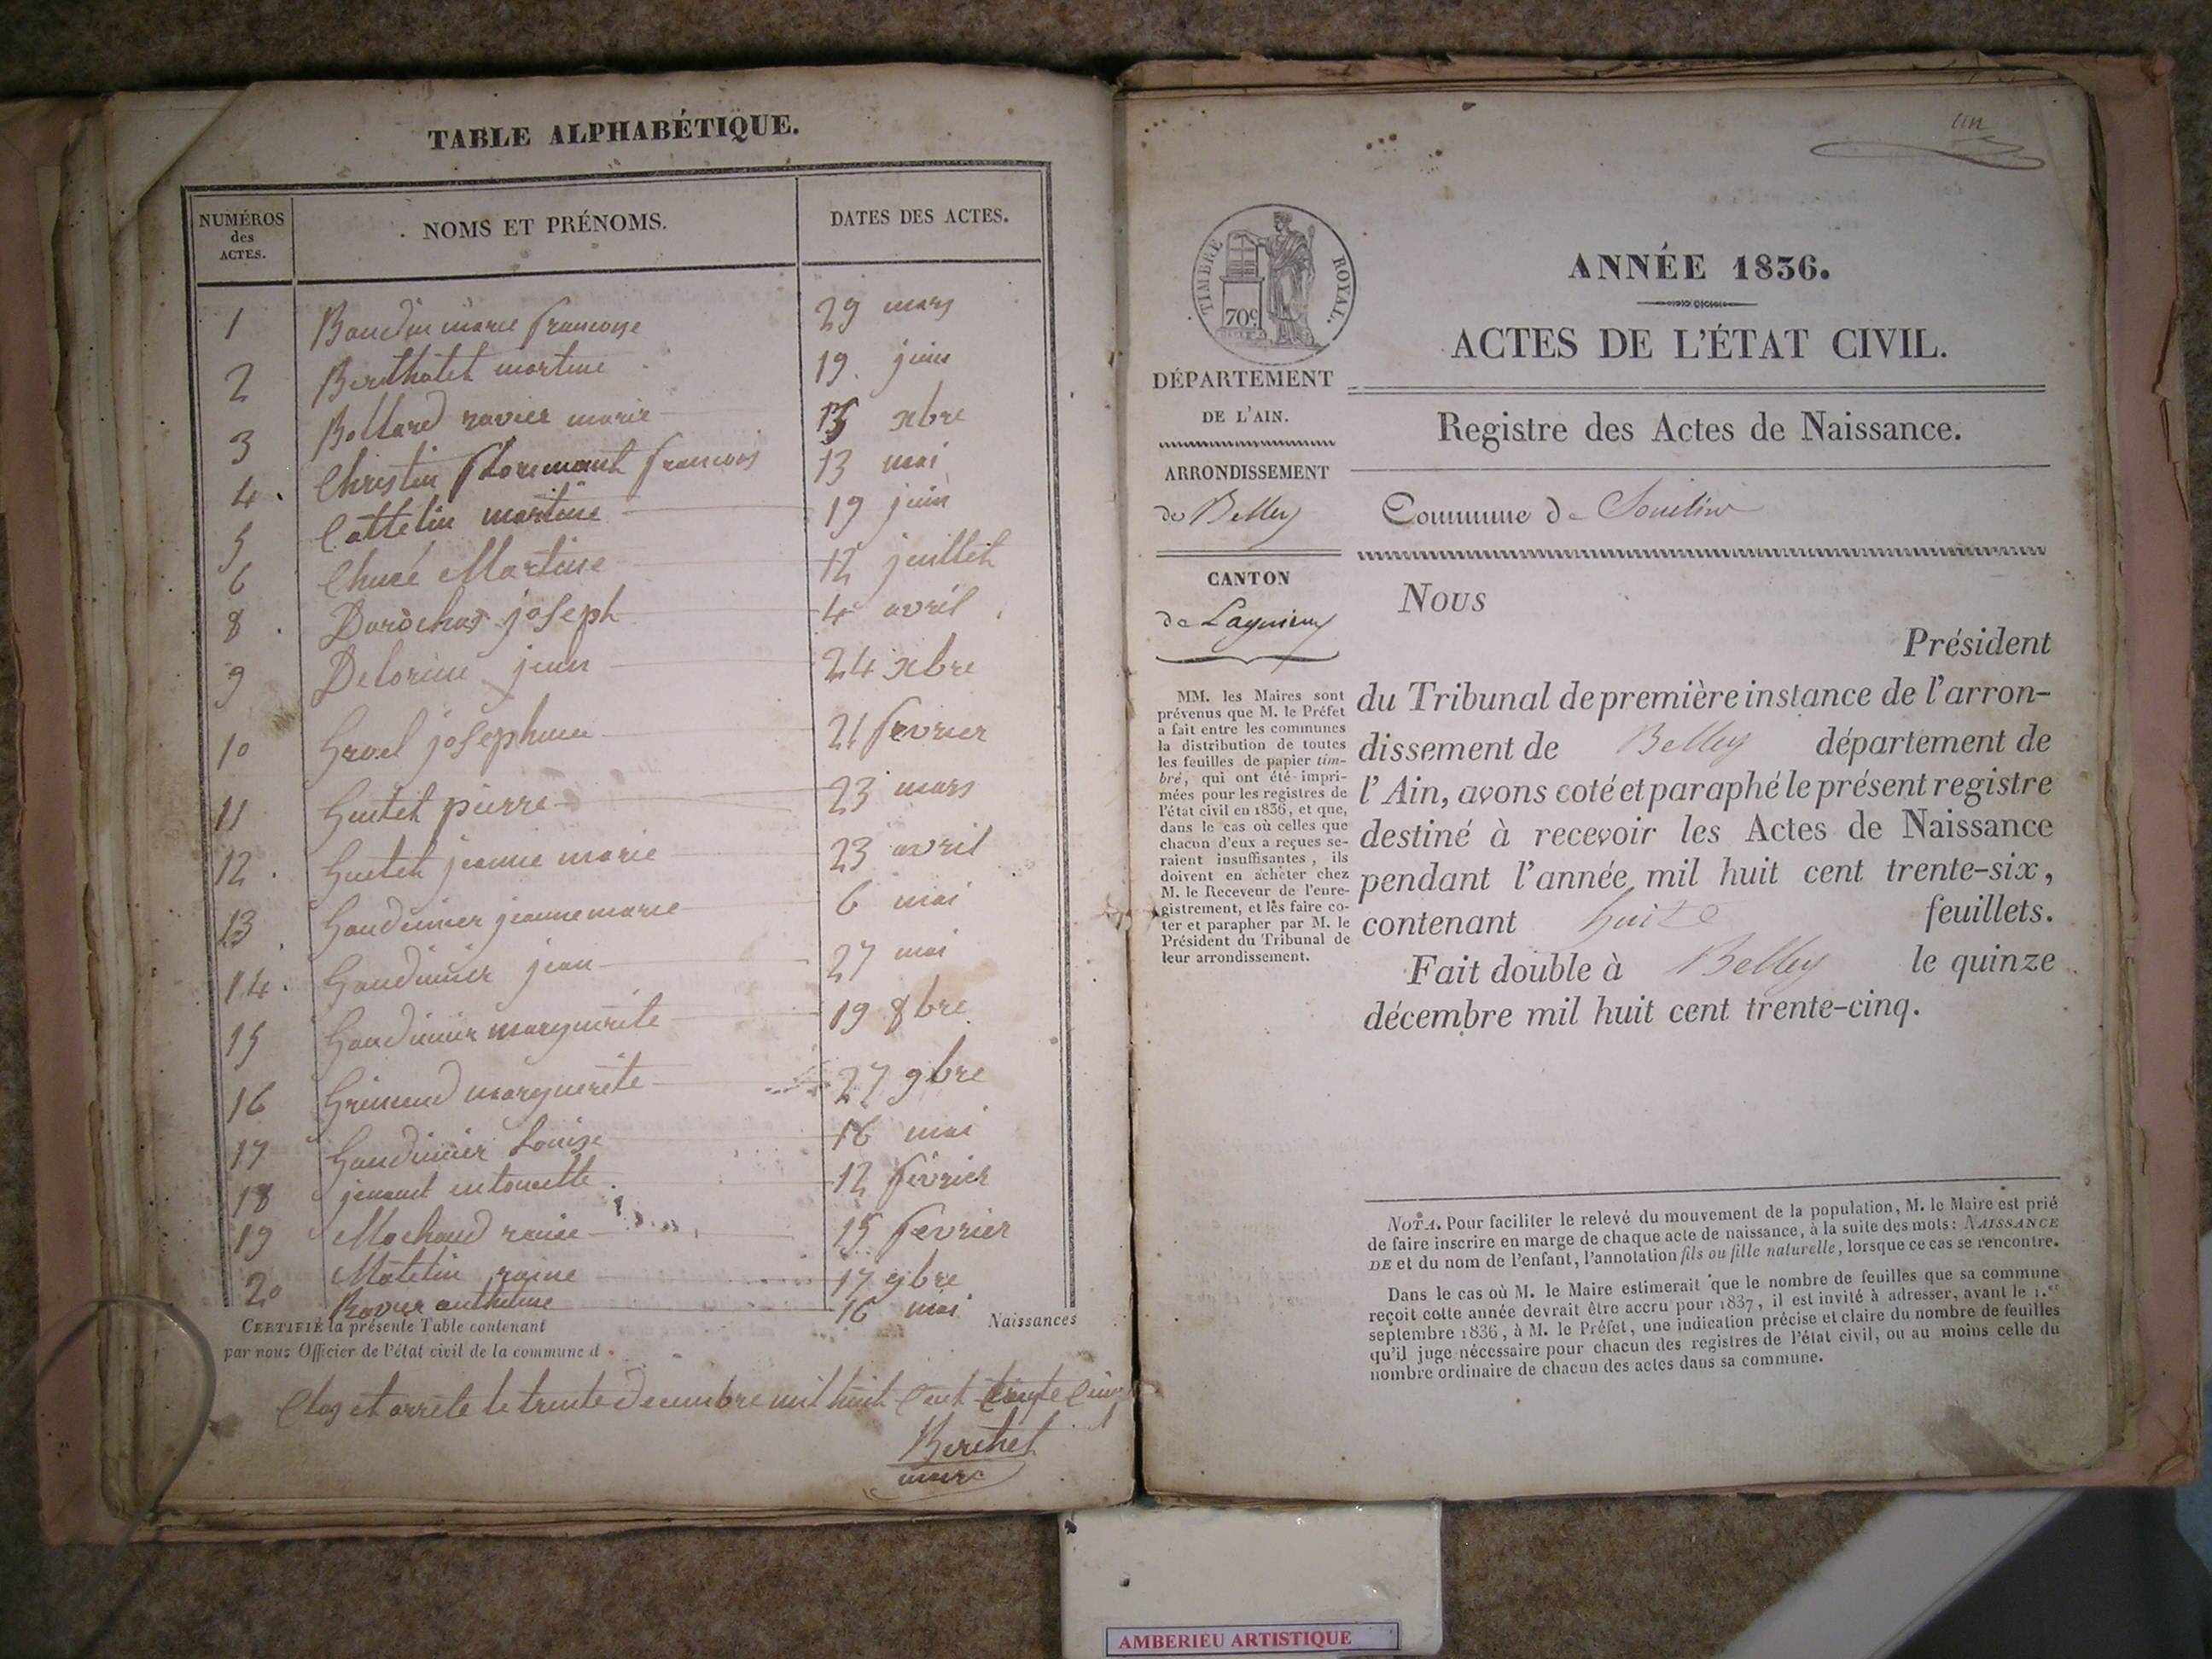 TABLE ALPHABÉTIQUE.
NUMÉROS des ACTES. NOMS ET PRÉNOMS. DATES DES ACTES.
1 Baudin marie francoise 29 mars
2 Berthotet martine 19 juin
3 Bollard xavier marie 15 xbre
4 Christin francois 13 mai
5 Cattelin martine 19 juin
6 Martine 12 juillet
8 joseph 4 avril
9 Delorme 24 xbre
10 josephine 21 fevrier
11 Gustet pierre 23 mars
12 Gustet jeanne marie 23 avril
13 Gaudinier jeanne marie 6 mai
14 Gaudinier jean 27 mai
15 Gaudinier marguerite 19 8bre
16 marguerite 27 9bre
17 Gaudinier Louise 16 mai
18 12 février
19 15 fevrier
20 17 9bre
16 mai
CERTIFIÉ la présente Table contenant Naissances
par nous Officier de l'état civil de la commune d
Clos et arrêté le trente decembre mil huit cent trente cinq
Berthet
maire
un
TIMBRE ROYAL.
70c
DÉPARTEMENT
DE L'AIN.
ARRONDISSEMENT
de Belley
CANTON
de Lagnieu
MM. les Maires sont
prévenus que M. le Préfet
a fait entre les communes
la distribution de toutes
les feuilles de papier tim-
bré, qui ont été impri-
mées pour les registres de
l'état civil en 1836, et que,
dans le cas où celles que
chacun d'eux a reçues se-
raient insuffisantes, ils
doivent en acheter chez
M. le Receveur de l'enre-
gistrement, et les faire co-
ter et parapher par M. le
Président du Tribunal de
leur arrondissement.
ANNÉE 1836.
ACTES DE L'ÉTAT CIVIL.
Registre des Actes de Naissance.
Commune de Souclin
Nous
Président
du Tribunal de première instance de l'arron-
dissement de Belley département de
l'Ain, avons coté et paraphé le présent registre
destiné à recevoir les Actes de Naissance
pendant l'année mil huit cent trente-six,
contenant huit feuillets.
Fait double à Belley le quinze
décembre mil huit cent trente-cinq.
NOTA. Pour faciliter le relevé du mouvement de la population, M. le Maire est prié
de faire inscrire en marge de chaque acte de naissance, à la suite des mots: NAISSANCE
DE et du nom de l'enfant, l'annotation fils ou fille naturelle, lorsque ce cas se rencontre.
Dans le cas où M. le Maire estimerait que le nombre de feuilles que sa commune
reçoit cette année devrait être accru pour 1837, il est invité à adresser, avant le 1.er
septembre 1836, à M. le Préfet, une indication précise et claire du nombre de feuilles
qu'il juge nécessaire pour chacun des registres de l'état civil, ou au moins celle du
nombre ordinaire de chacun des actes dans sa commune.
AMBERIEU ARTISTIQUE